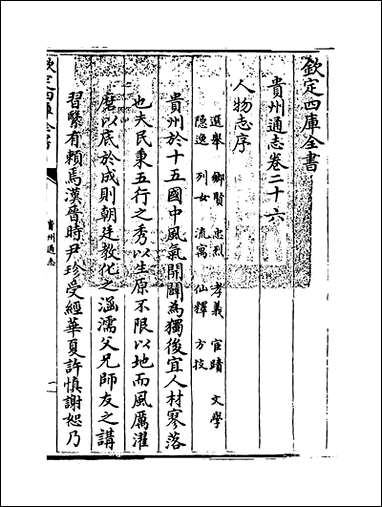 欽定四庫全書
貴州通志卷二十六
人物志序
選舉 鄉賢 忠烈 孝義 宦蹟 文學
隱逸 列女 流寓 仙釋 方技
貴州於十五國中風氣開闢為獨後宜人材寥落
也夫民秉五行之秀以生原不限以地而風厲濯
磨以底於成則朝廷教化之涵濡父兄師友之講
習繄有頼焉漢晉時尹珍受經華夏許慎謝恕乃
欽定四庫全書
貴州通志
一